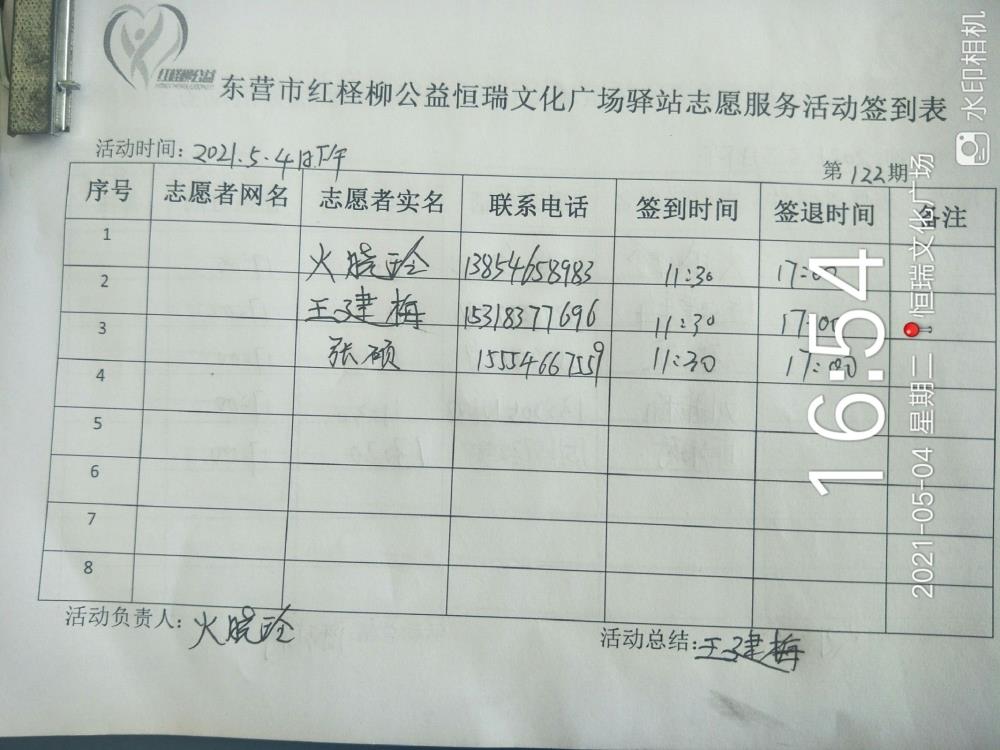 红柽柳公益
东营市红柽柳公益恒瑞文化广场驿站志愿服务活动签到表
活动时间：2021.5.4日下午
第122期
序号 志愿者网名 志愿者实名 联系电话 签到时间 签退时间 备注
1 火晓玲 13854658983 11:30 17:00
2 王建梅 15318377696 11:30 17:00
3 张硕 15554667559 11:30 17:00
4
5
6
7
8
活动负责人：火晓玲
活动总结：王建梅
16:54
2021-05-04 星期二 恒瑞文化广场
水印相机